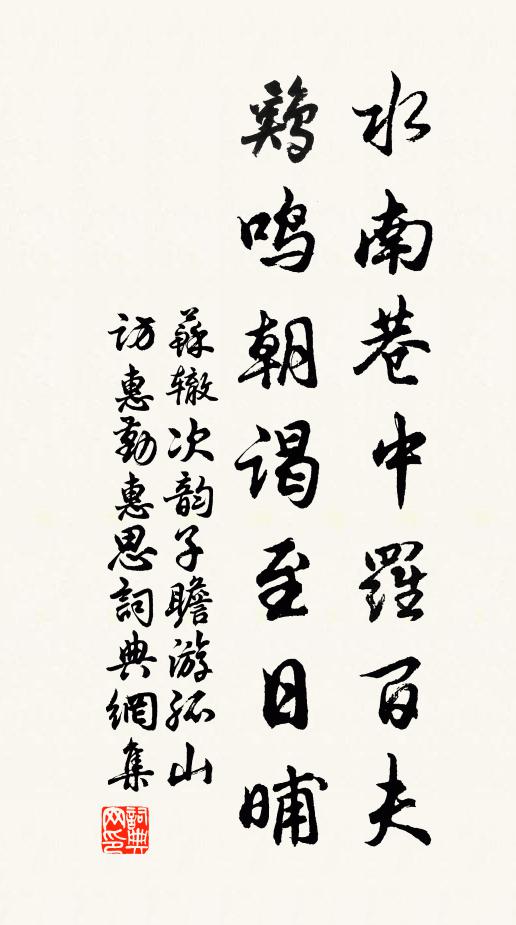 水南巷中羅百夫
鷄鳴朝謁至日晡
蘇辙次韵子瞻游孤山
訪惠勤惠思詞典網集
詞典
网印